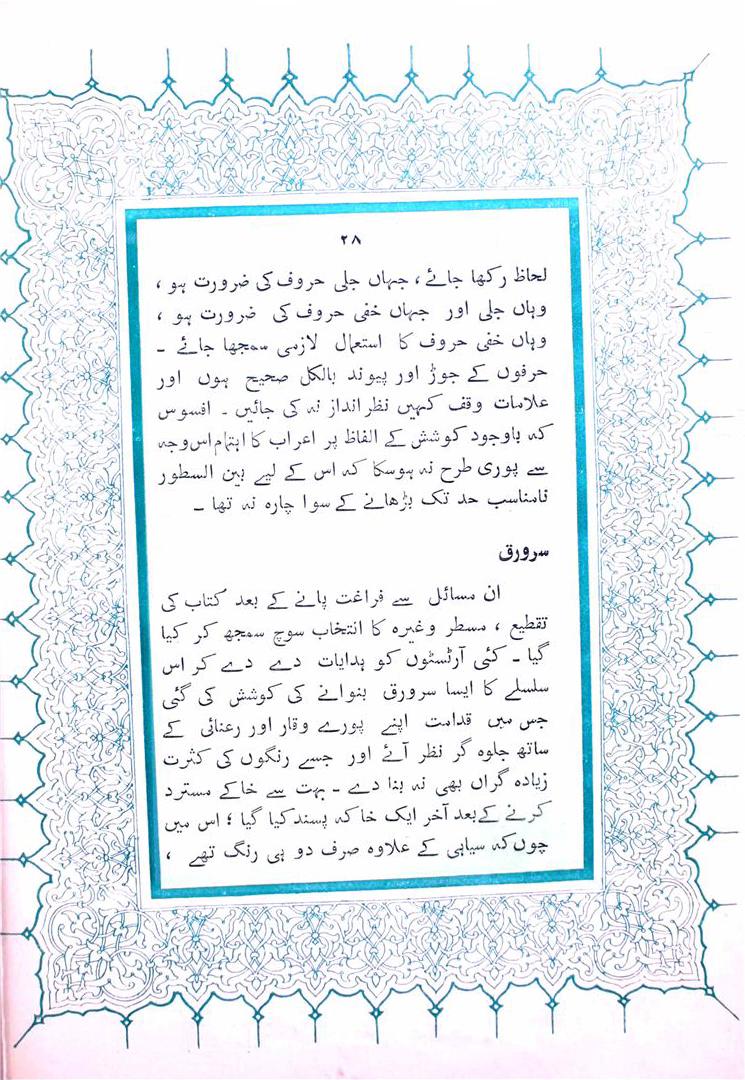 ۲۸
لحاظ رکھا جائے ، جہاں جلی حروف کی ضرورت ہو ،
وہاں جلی اور جہاں خفی حروف کی ضرورت ہو ،
وہاں خفی حروف کا استعمال لازمی سمجھا جائے ـ
حرفوں کے جوڑ اور پیوند بالکل صحیح ہوں اور
علامات وقف کہیں نظر انداز نہ کی جائیں ۔ افسوس
کہ باوجود کوشش کے الفاظ پر اعراب کا اہتمام اس وجہ
سے پوری طرح نہ ہوسکا کہ اس کے لیے بین السطور
نامناسب حد تک بڑھانے کے سوا چارہ نہ تھا ـ
سرورق
ان مسائل سے فراغت پانے کے بعد کتاب کی
تقطیع ، مسطر وغیرہ کا انتخاب سوچ سمجھ کر کیا
گیا ـ کئی آرٹسٹوں کو ہدایات دے دے کر اس
سلسلے کا ایسا سرورق بنوانے کی کوشش کی گئی
جس میں قدامت اپنے پورے وقار اور رعنائی کے
ساتھ جلوہ گر نظر آئے اور جسے رنگوں کی کثرت
زیادہ گراں بھی نہ بنا دے ـ بہت سے خاکے مسترد
کرنے کے بعد آخر ایک خاکہ پسند کیا گیا ؛ اس میں
چوں کہ سیاہی کے علاوہ صرف دو ہی رنگ تھے ،